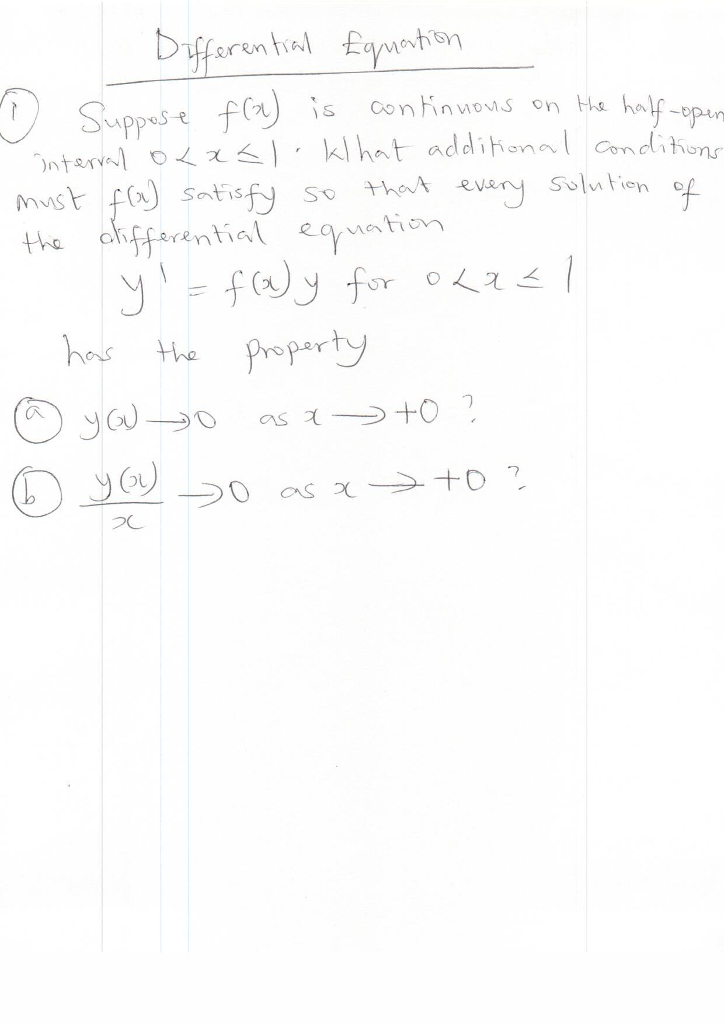 Differential Equation
① Suppose f(x) is continuous on the half-open
interval 0<x≤1. What additional conditions
must f(x) satisfy so that every solution of
the differential equation
y' = f(x) y for 0<x≤1
has the property
ⓐ y(x) → 0 as x → +0 ?
ⓑ y(x)/x → 0 as x → +0 ?